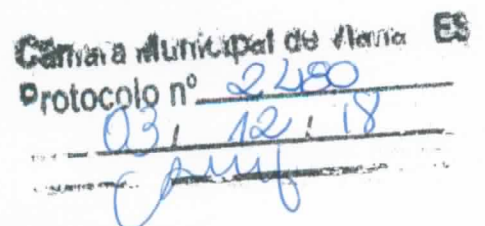 Câmara Municipal de Viana ES
Protocolo nº 2480
03, 12, 18